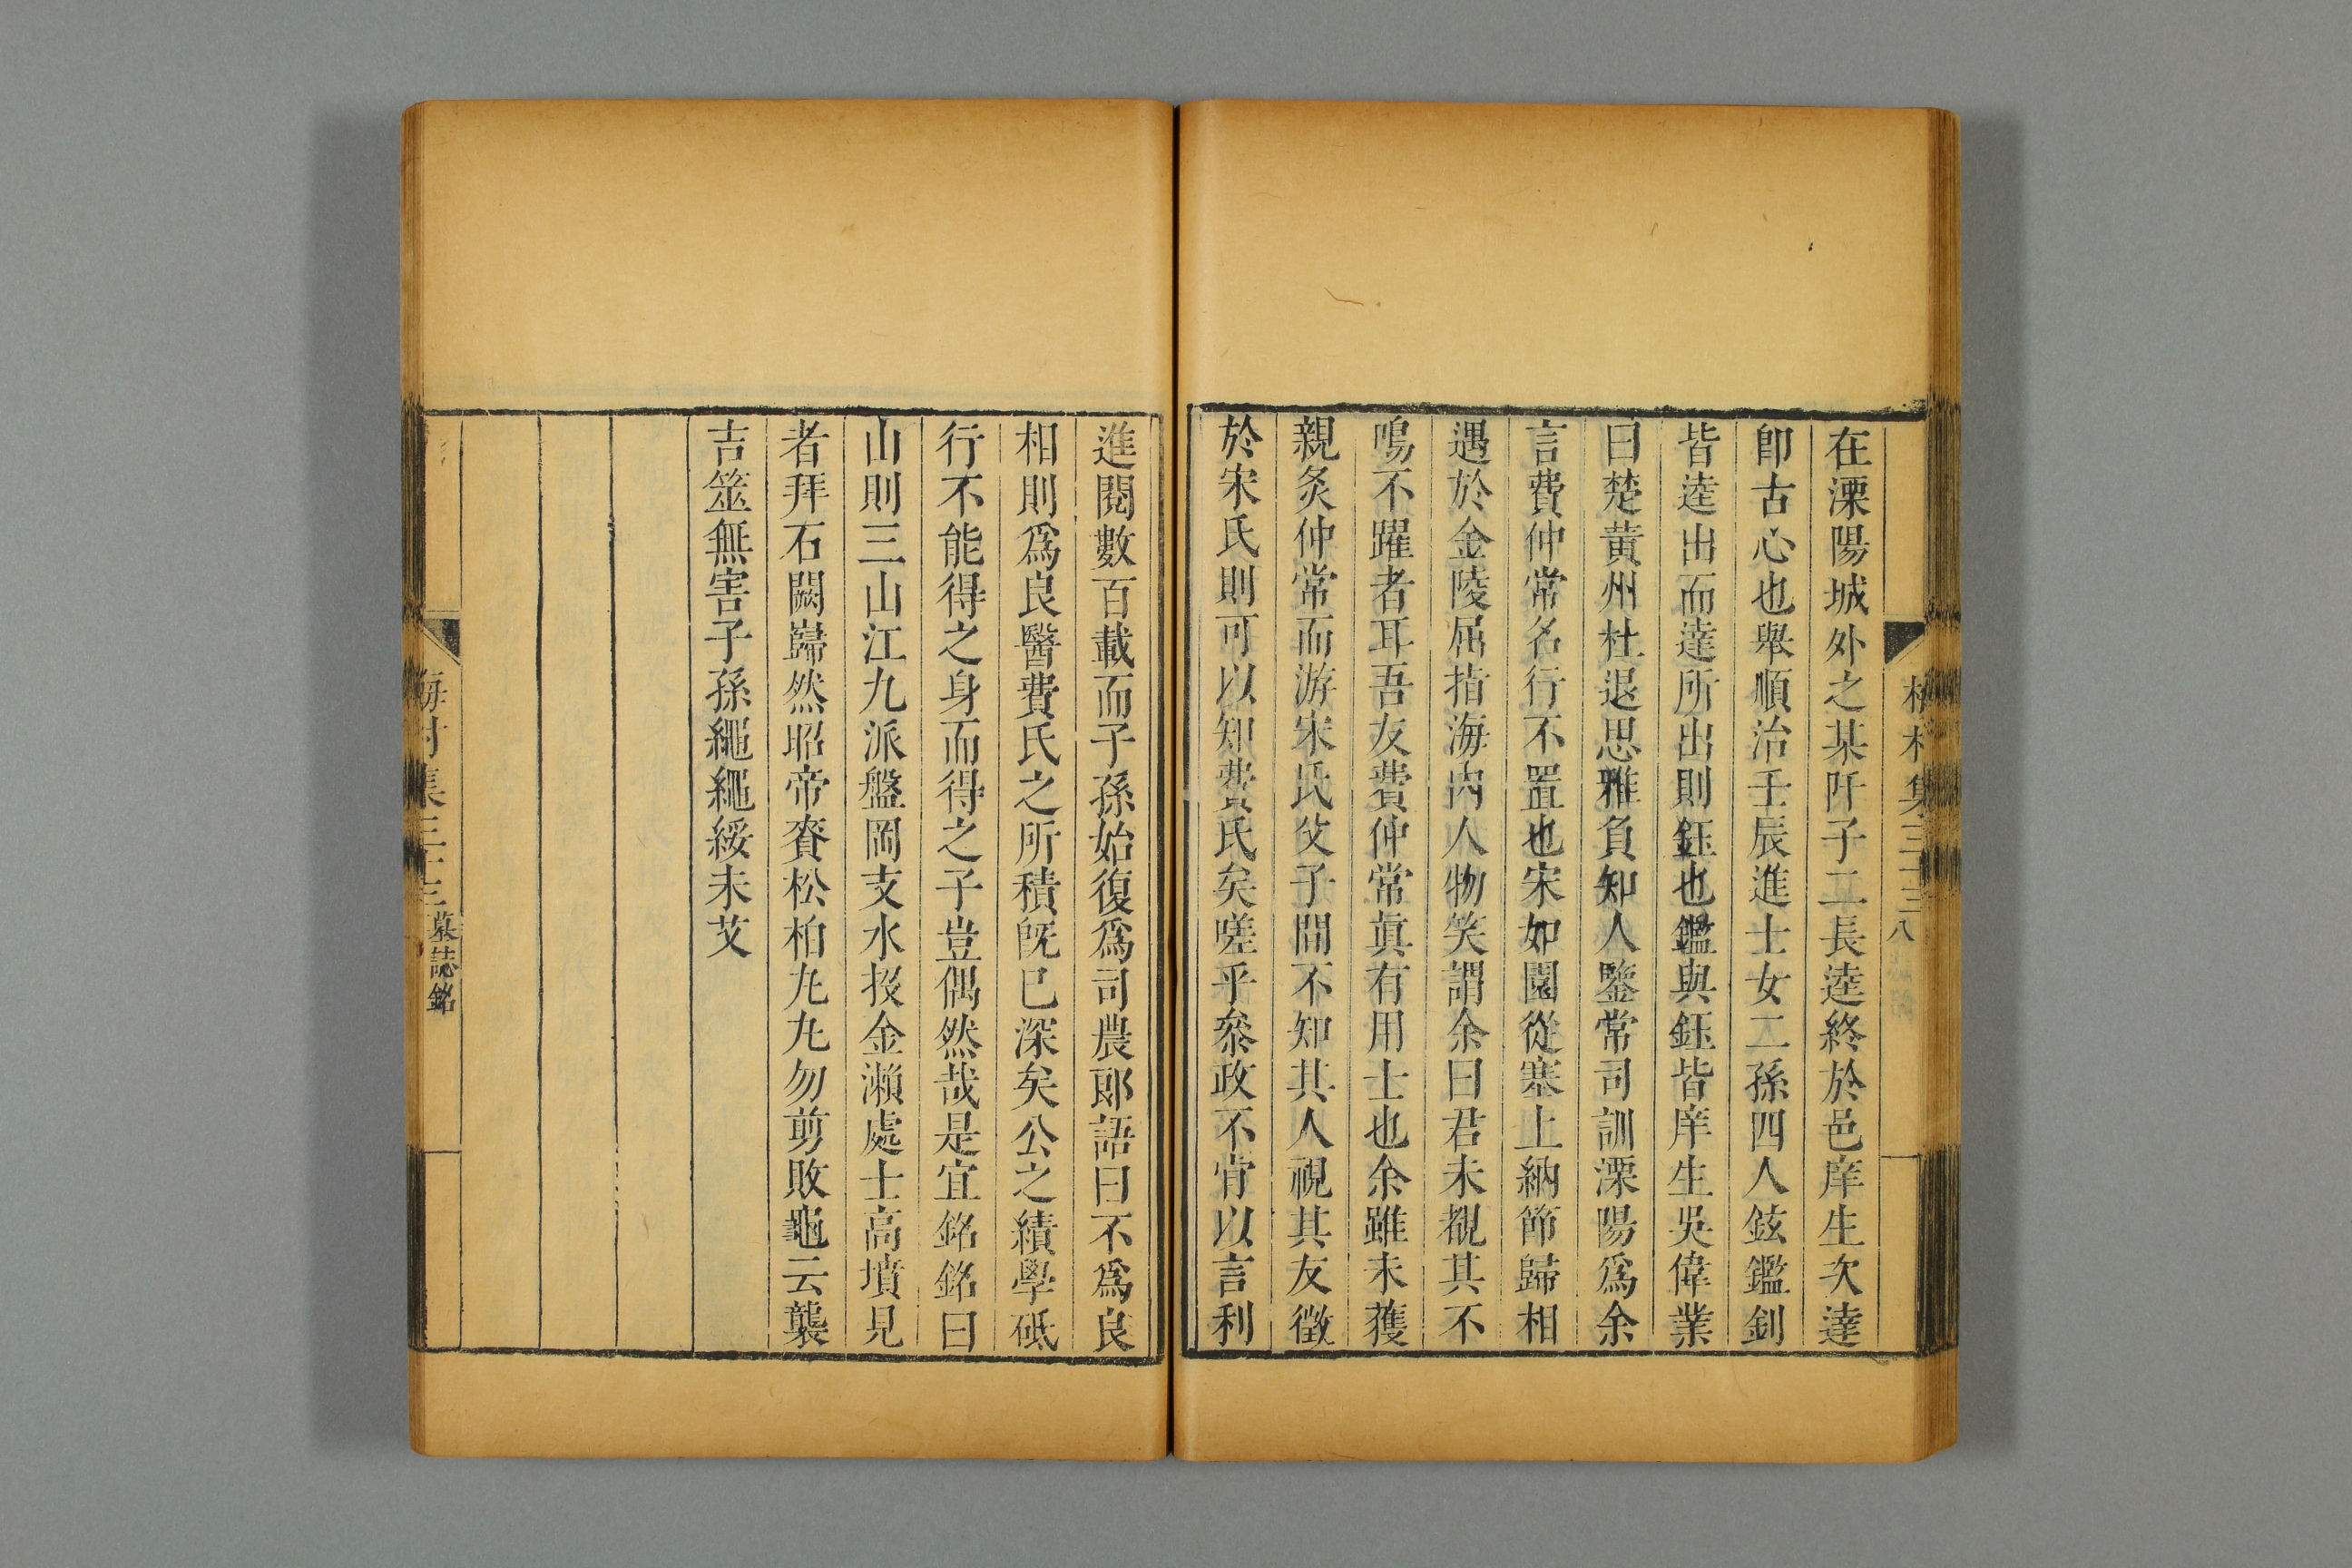 在溧陽城外之某阡子二長逵終於邑庠生次達
卽古心也舉順治壬辰進士女二孫四人鉉鑑釗
皆逵出而達所出則鈺也鑑與鈺皆庠生吳偉業
曰楚黃州杜退思雅負知人鑒常司訓溧陽爲余
言費仲常名行不置也宋如園從塞上納節歸相
遇於金陵屈指海內人物笑謂余曰君未覩其不
鳴不躍者耳吾友費仲常眞有用士也余雖未獲
親炙仲常而游宋氏父子間不知其人視其友徵
於宋氏則可以知費氏矣嗟乎叅政不肯以言利
進閱數百載而子孫始復爲司農郎語曰不爲良
相則爲良醫費氏之所積旣已深矣公之績學砥
行不能得之身而得之子豈偶然哉是宜銘銘曰
山則三山江九派盤岡支水投金瀨處士高墳見
者拜石闕巋然昭帝賚松柏丸丸勿剪敗龜云襲
吉筮無害子孫繩繩綏未艾
梅村集三十三 墓誌銘